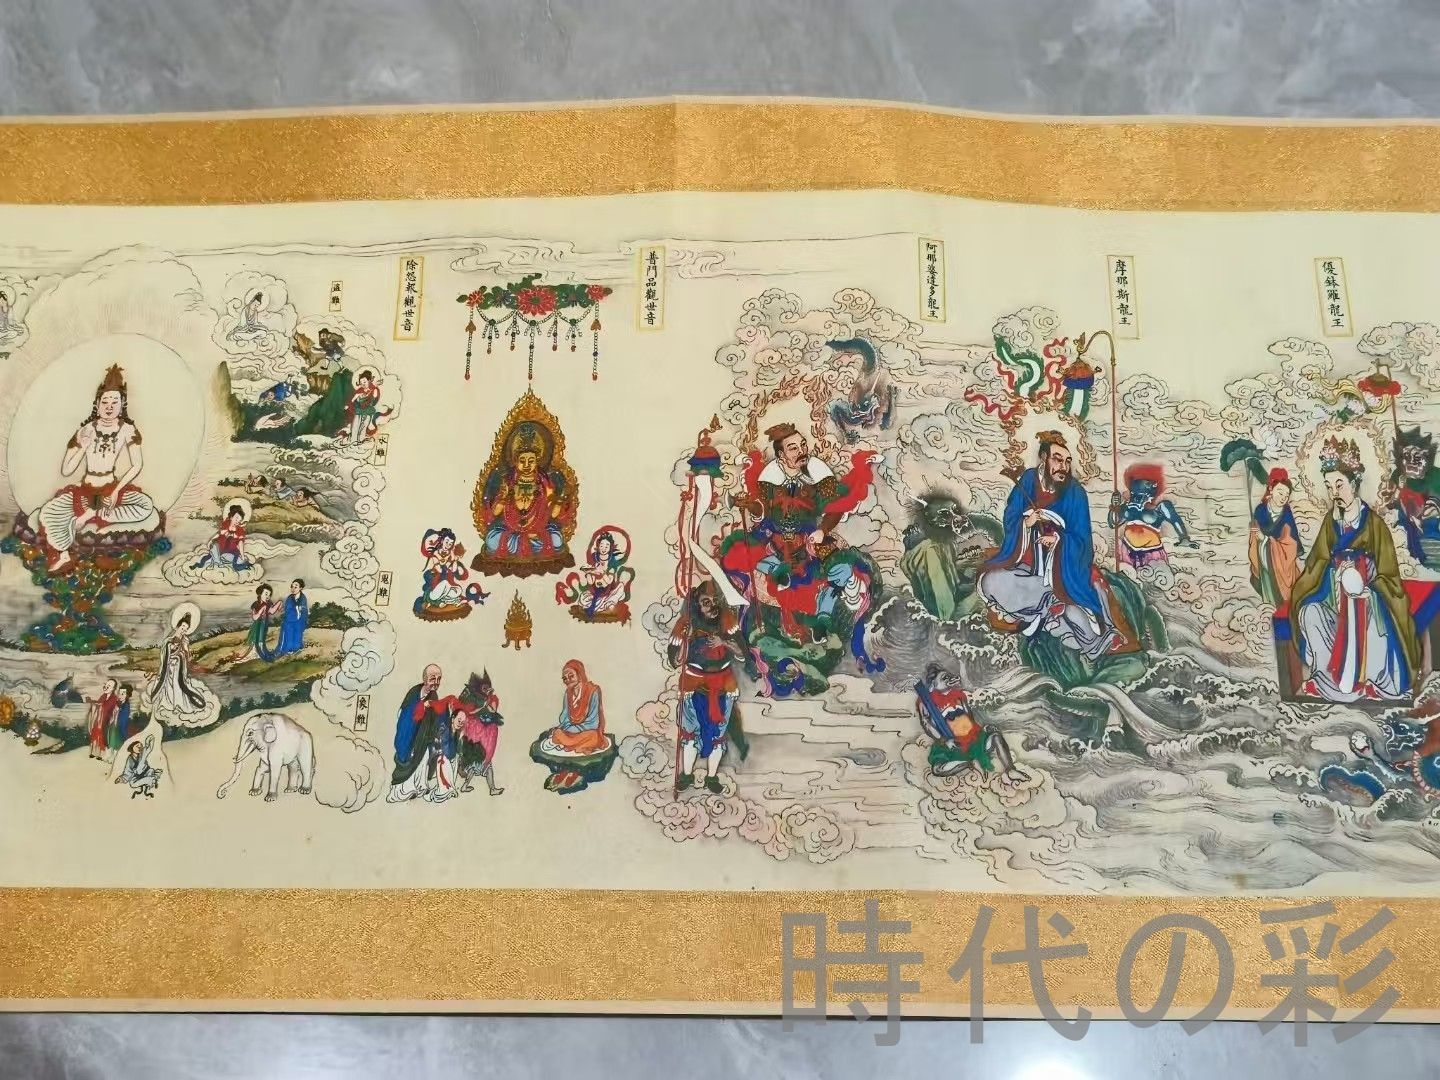 盗難
除怨報觀世音
水難
鬼難
象難
普門品觀世音
阿那婆達多龍王
摩那斯龍王
優鉢羅龍王
時代の彩